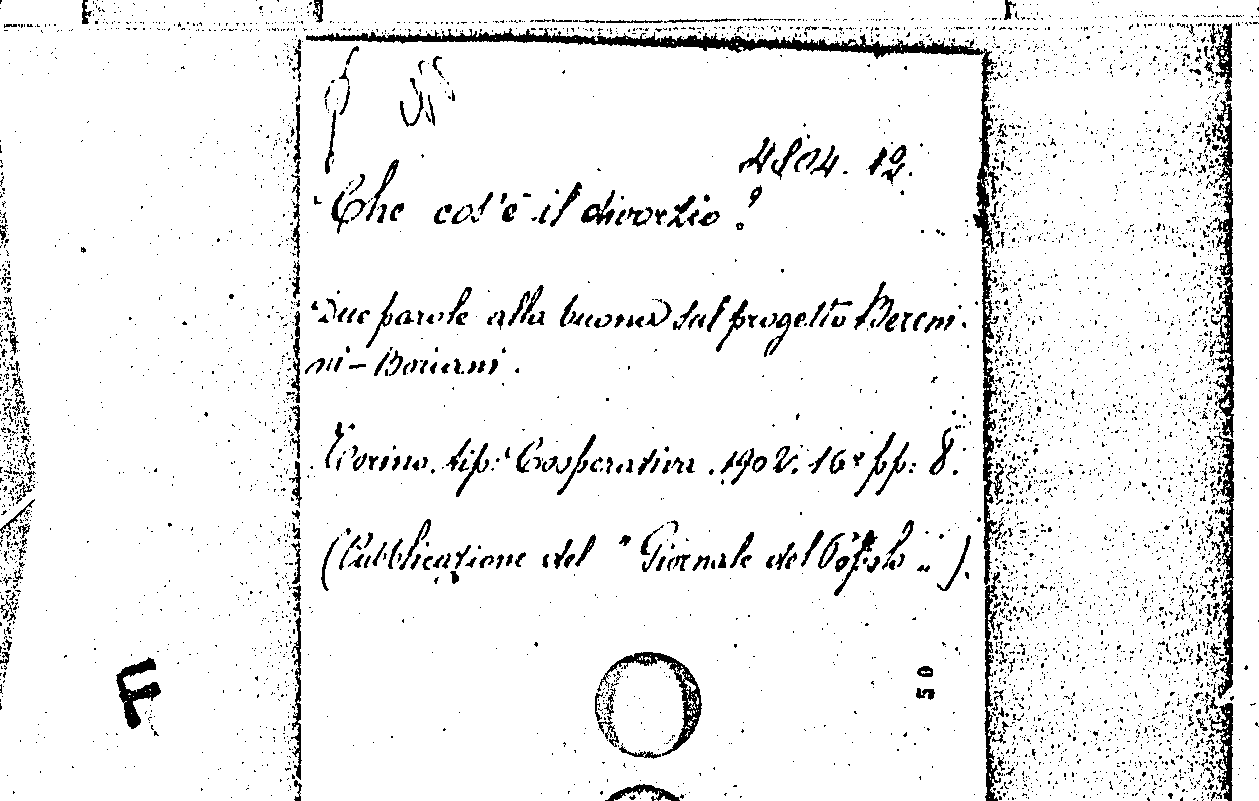 4804. 12.
Che cos'è il divorzio?
Due parole alla buona sul progetto Bereni-
ni - Borciani.
Torino. tip: Cooperativa. 1902. 16° pp: 8.
(Pubblicazione del "Giornale del Popolo").
50
F